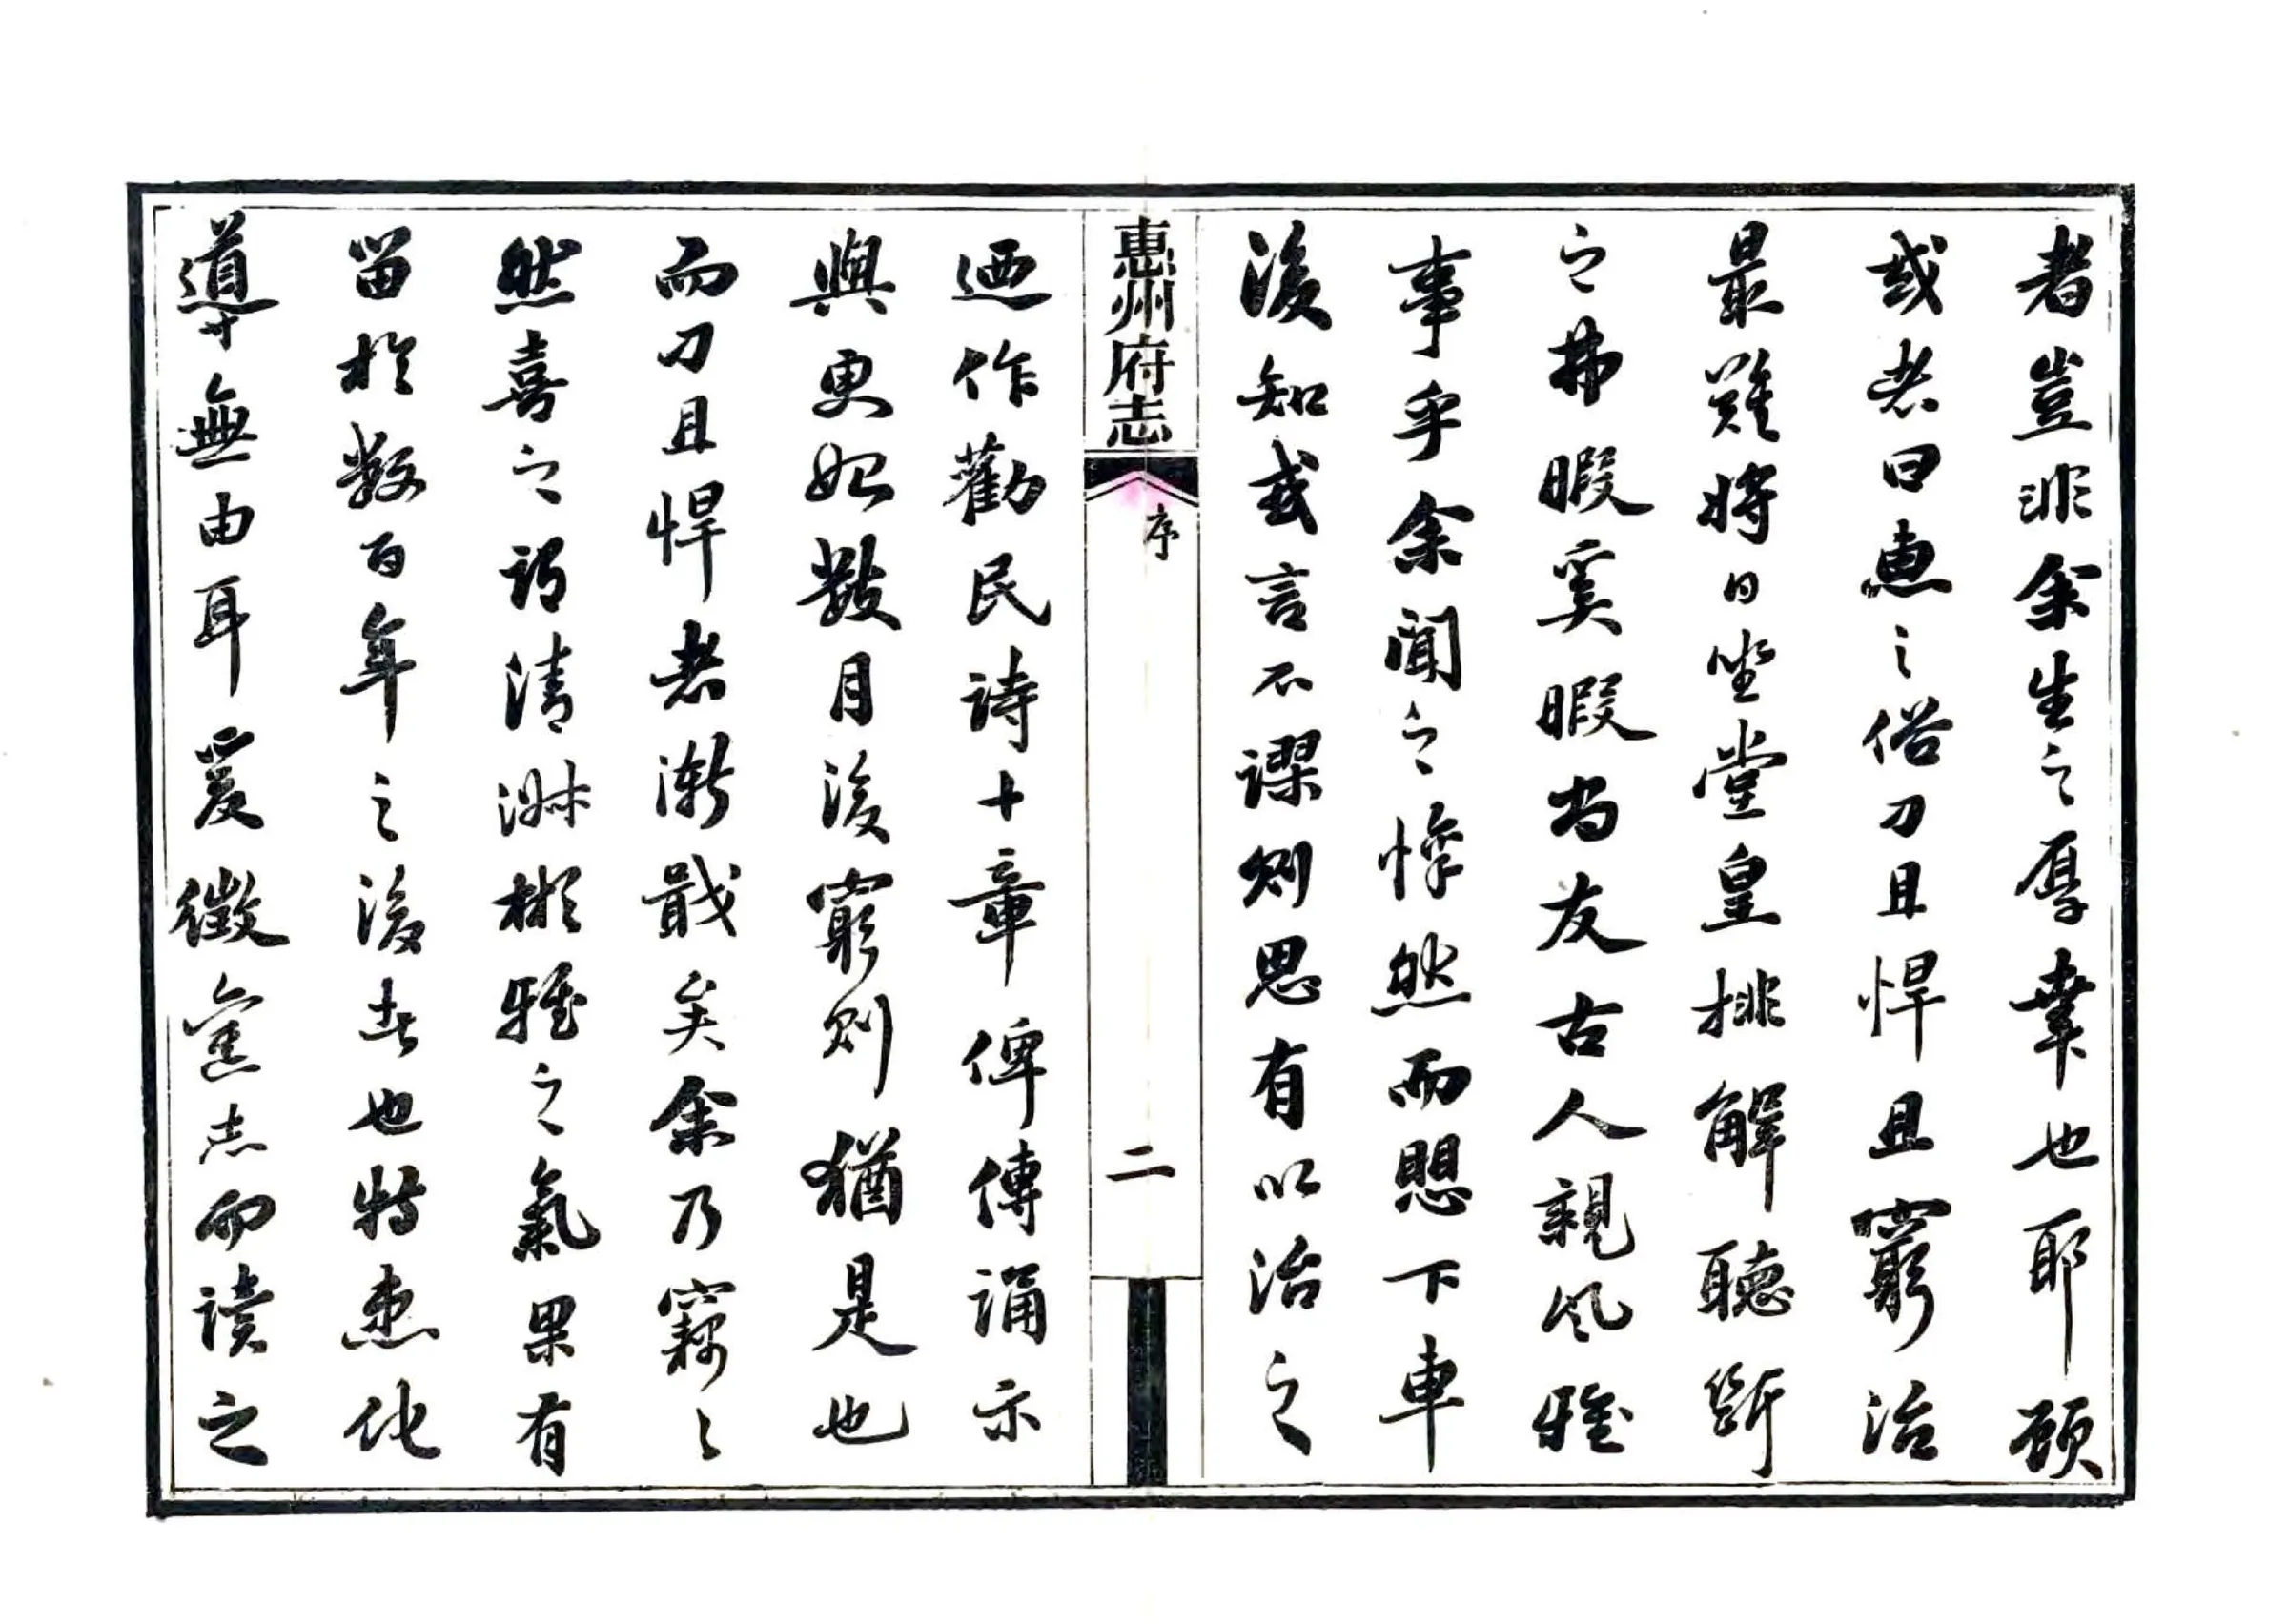 者豈非余生之厚幸也耶顧
或者曰惠之俗刀且悍且窮治
最難將日坐堂皇排解聽斷
之弗暇奚暇尚友古人親風雅
事乎余聞之悚然而思下車
後知或言不謬則思有以治之
惠州府志
序
二
迺作勸民詩十章俾傳誦示
與更始數月後窮則猶是也
而刀且悍者漸戢矣余乃竊之
然喜之謂清淑彬雅之氣果有
留於数百年之後者也特患化
導無由耳爰徵舊志而读之